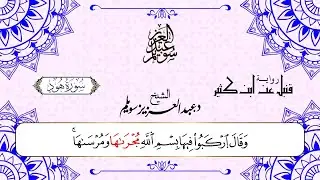 عبد العزيز سويلم
رواية
قنبل عن ابن كثير
الشيخ
د عبد العزيز سويلم
سورة هود
وَقَالَ ٱرْكَبُوا۟ فِيهَا بِسْمِ ٱللَّهِ مُجْر۪ىٰهَا وَمُرْسَىٰهَا ۚ